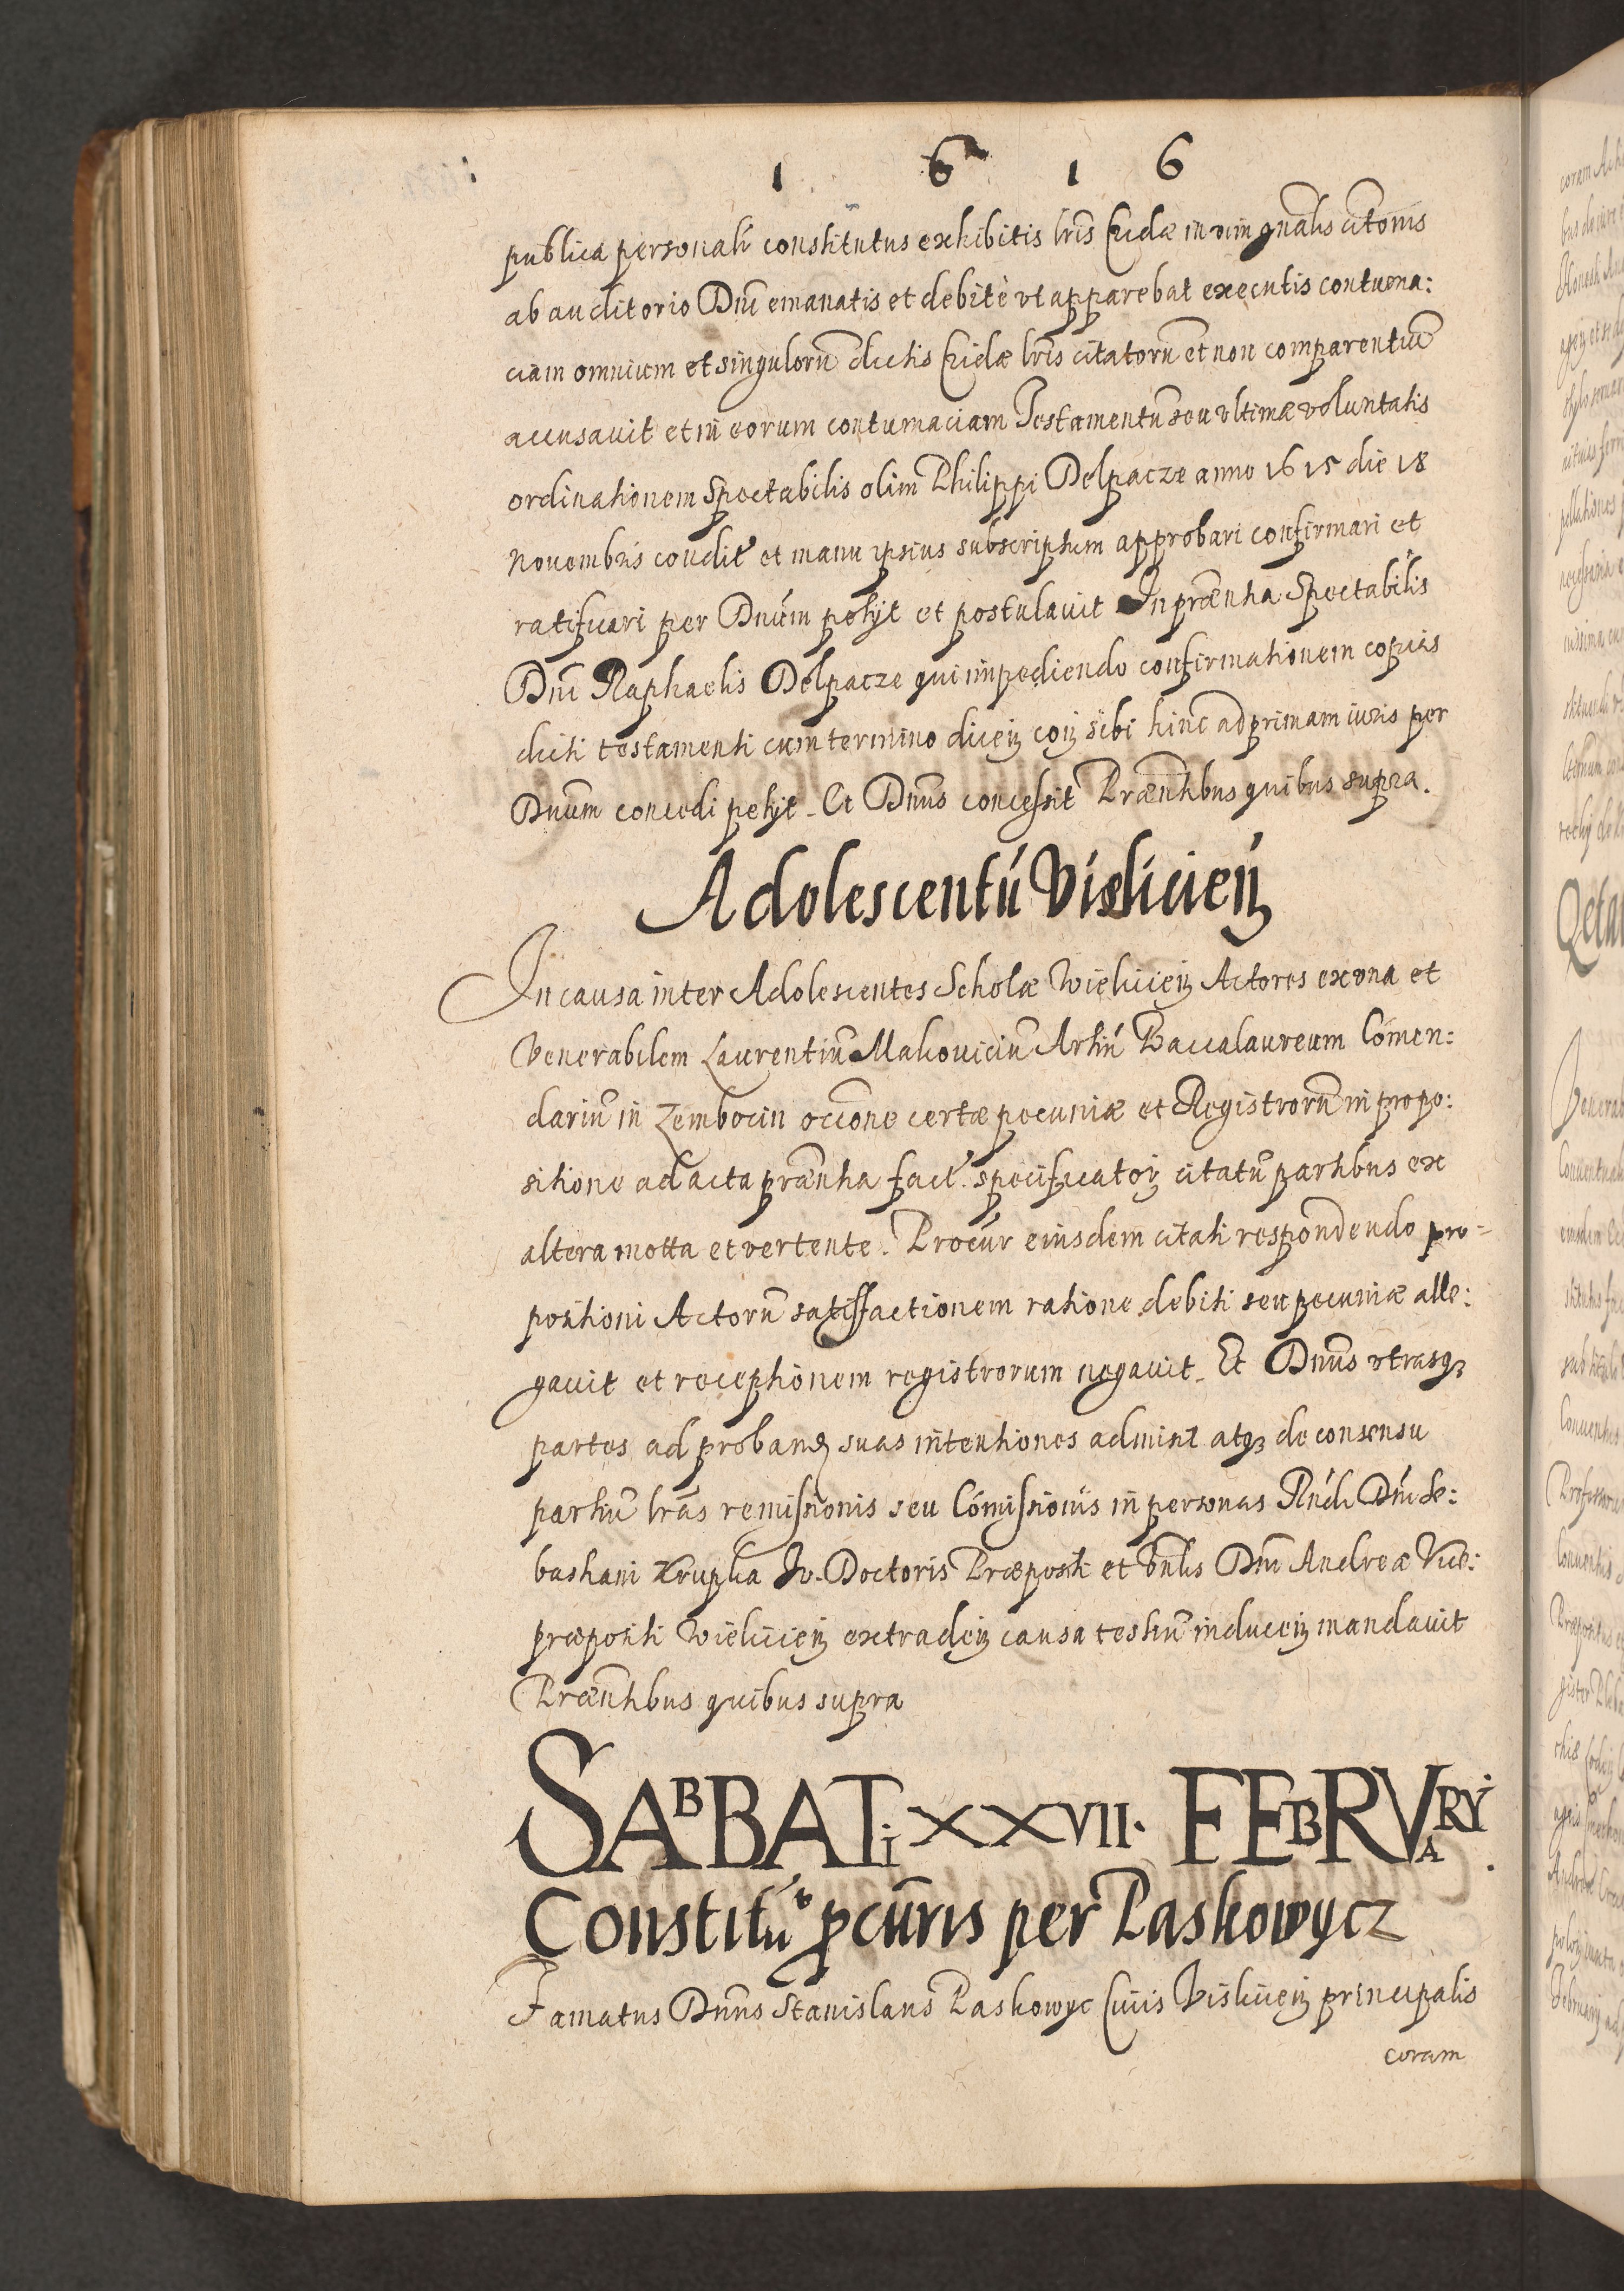 1 6 1 6
publica personalr constitutus exhibitis lrīs Cridæ in vim gnālis citōnis
ab auditorio Dnī emanatis et debitè vt apparebat executis contuma:
ciam omnium et singulorū dictis Cridæ lrīs citatorū et non comparentiū
accusauit et in eorum contumaciam Testamentū seu vltimæ voluntatis
ordinationem Spectabilis olim Philippi Delpacze anno 1615 die 18
Nouembris condit et manu ipsius subscriptum approbari confirmari et
ratificari per Dnūm petijt et postulauit In præntia Spectabilis
Dnī Raphaelis Delpacze qui impediendo confirmationem copias
dicti testamenti cum termino diceń coń sibi hinc ad primam iuris per
Dnūm concedi petijt. Et Dnūs concessit Præntibus quibus supra.
Adolescentū Vieliciej
In causa inter Adolescentes Scholæ Wieliciej Actores ex vna et
Venerabilem Laurentiū Makouiciū Artiū Baccalaureum Cōmen:
dariū in Zembocin occōne certæ pecuniæ et Registrorū in propo:
sitione ad acta præntia fact. specificatoȝ citatū partibus ex
altera motta et vertente. Procūr eiusdem citati respondendo pro-
positioni Actorū satisfactionem ratione debiti seu pecuniæ alle:
gauit et receptionem registrorum negauit. Et Dnūs vtrasqȝ
partes ad proband suas intentiones admint atqȝ de consensu
partiū lrās remissionis seu Cōmissionis in personas Rńdi Dnī Se:
bastiani Krupka Iv. Doctoris Præpositi et Vnlis Dnī Andreæ Vice:
præpositi Wieliciej extradeń causa testiū induceń mandauit
Præntibus quibus supra
SABBATi XXVII. FEBRVARY.
Constitū pcūris per Paskowycz
Famatus Dnūs Stanislaus Paskowyc Ciuis Vieliciej principalis
coram